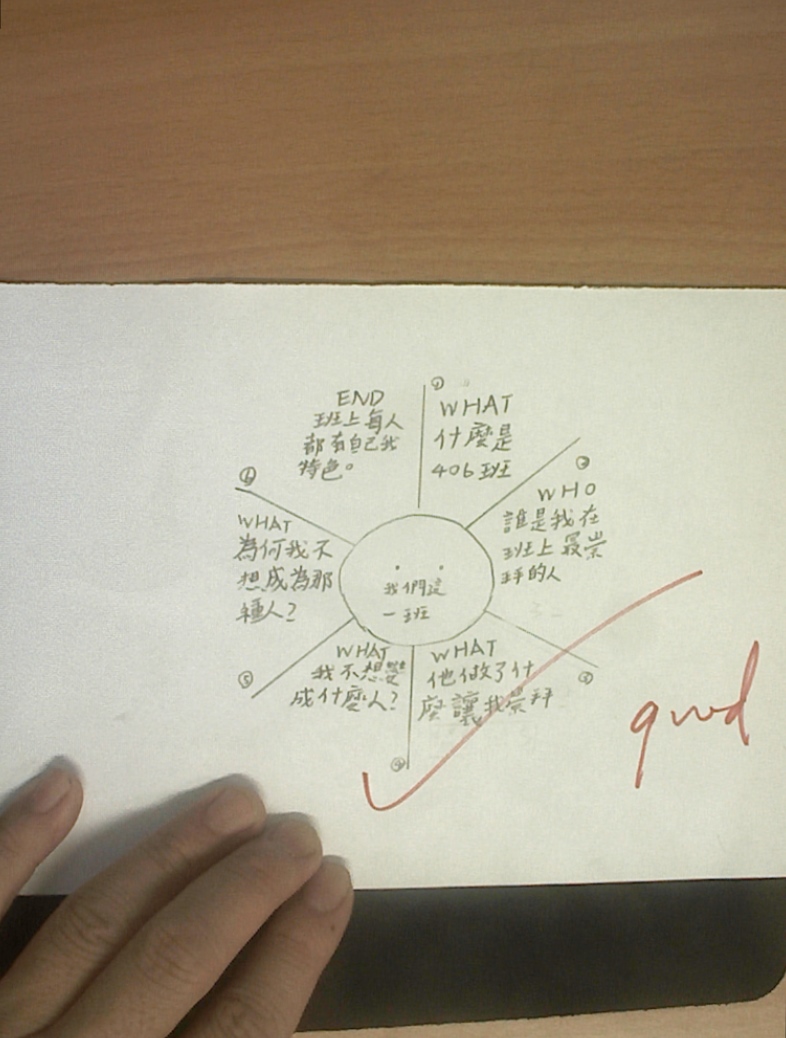 我們這
一班
①
WHAT
什麼是
406班
②
WHO
誰是我在
班上最崇
拜的人
③
WHAT
他做了什
麼讓我崇拜
④
WHAT
我不想變
成什麼人?
⑤
WHAT
為何我不
想成為那
種人?
⑥
END
班上每人
都有自己我
特色。
good